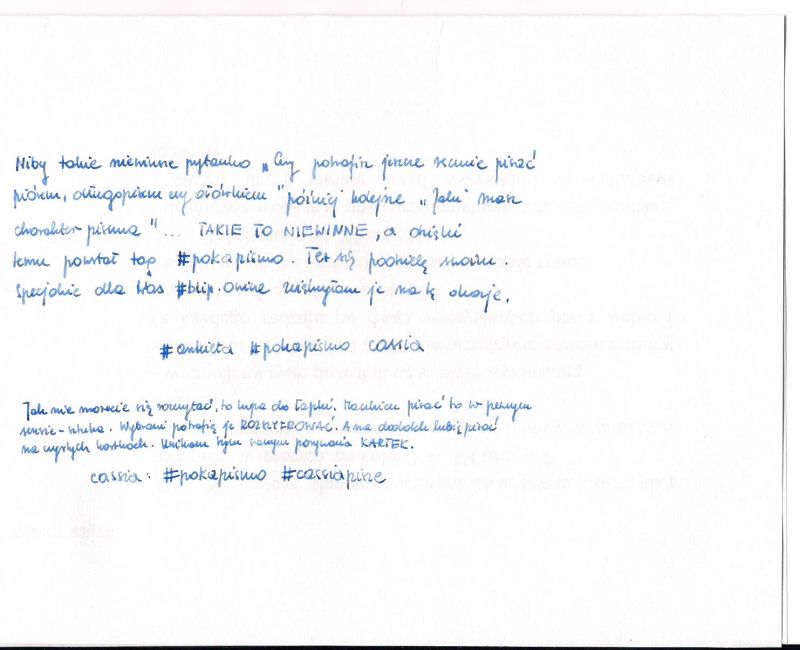 Niby takie niewinne pytanko „Czy potrafisz jeszcze ręcznie pisać
piórem, długopisem czy ołówkiem" później kolejne „Jaki masz
charakter pisma"... TAKIE TO NIEWINNE, a dzięki
temu powstał tag #pokapismo. Też się podzielę swoim.
Specjalnie dla Was #blip.owicze je na tę okazję.
#ankieta #pokapismo cassia
Jak nie możecie się rozczytać, to lupa do łapki. pisać to w pewnym
sensie - sztuka. Wybrani potrafią je ROZSZYFROWAĆ. A na dodatek lubię pisać
na czystych kartkach. Unikam tym samym porywania KARTEK.
cassia: #pokapismo #cassiapisze